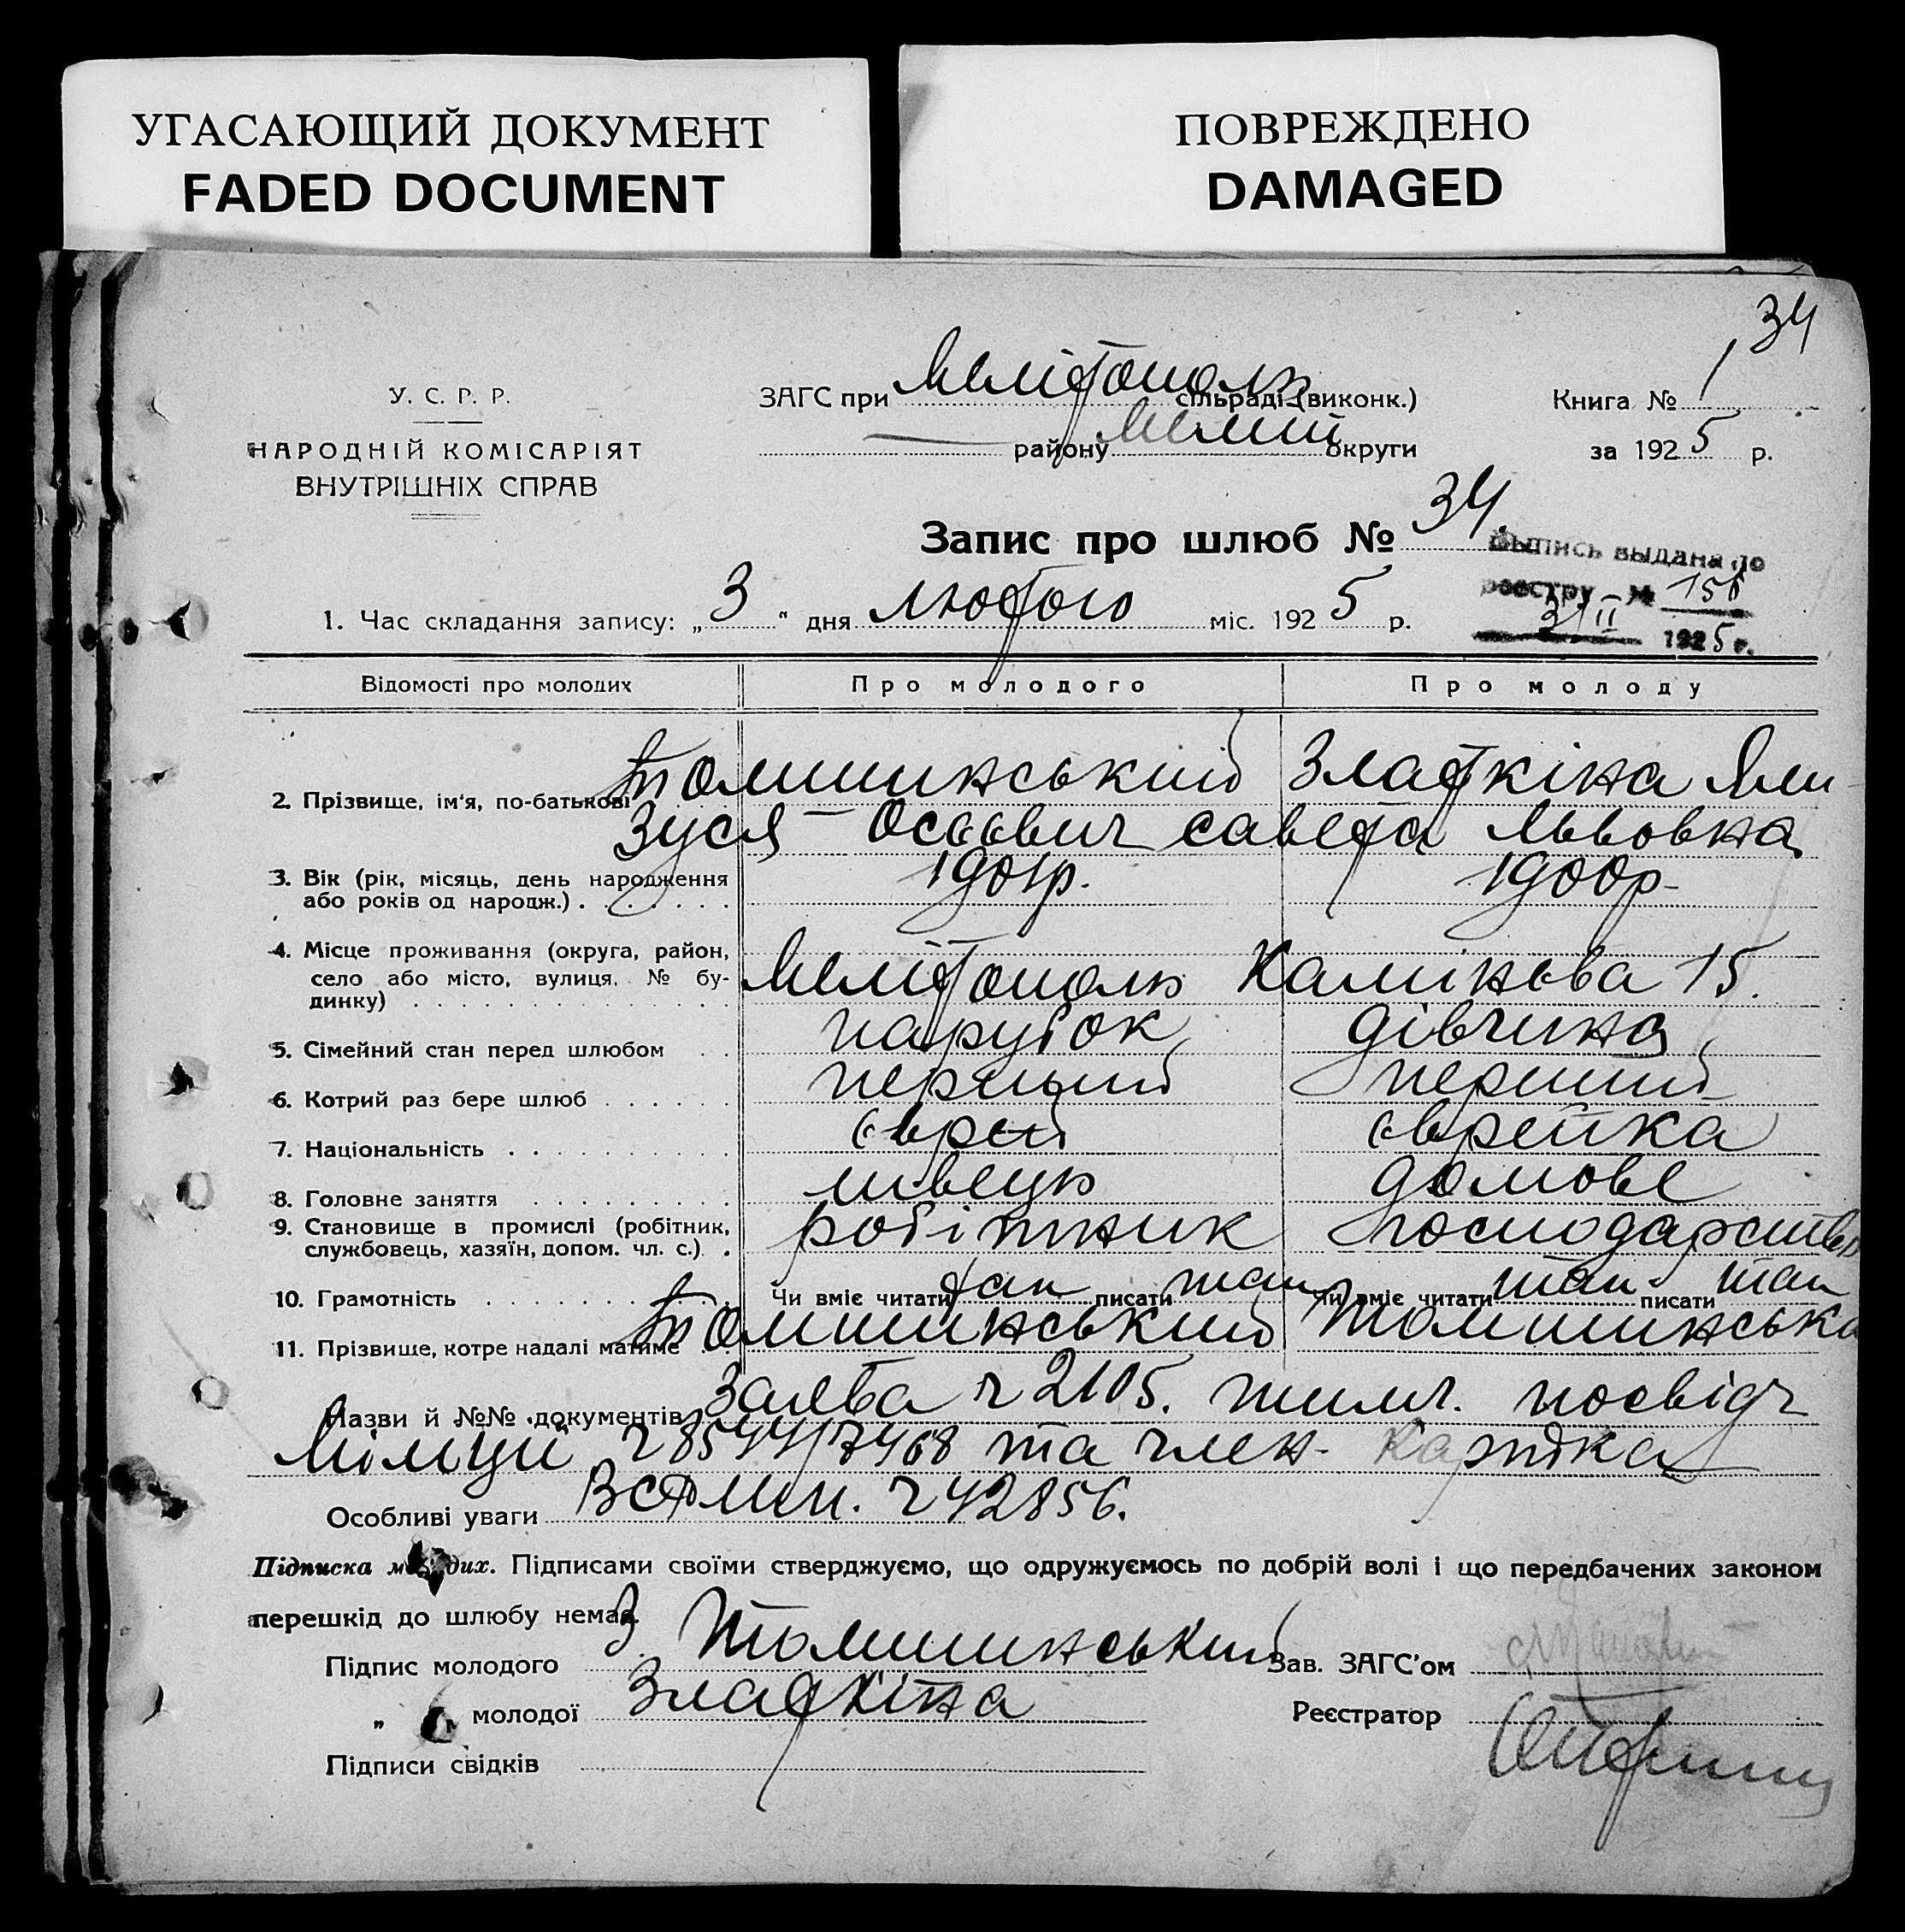 УГАСАЮЩИЙ ДОКУМЕНТ
FADED DOCUMENT
ПОВРЕЖДЕНО
DAMAGED
34
У. С. Р. Р.
НАРОДНІЙ КОМІСАРІЯТ
ВНУТРІШНІХ СПРАВ
ЗАГС при Мелітополь сільраді (виконк.)
району Меліт округи
Книга № 1
за 1925 р.
Запис про шлюб № 34.
Выпись выдана по
реестру № 156
3/II 1925 г.
1. Час складання запису: „3" дня лютого міс. 1925 р.
Відомості про молодих Про молодого Про молоду
2. Прізвище, ім'я, по-батькові Томшинський Златкіна Єли-
Зуся Осьович савета Львовна
3. Вік (рік, місяць, день народження 1901р. 1900р.
або років од народж.)
4. Місце проживання (округа, район,
село або місто, вулиця, № бу- Мелітополь Калінєва 15.
динку)
5. Сімейний стан перед шлюбом парубок дівчина
6. Котрий раз бере шлюб перший перший
7. Національність єврей єврейка
8. Головне заняття швець домове
9. Становище в промислі (робітник, робітник господарство
службовець, хазяїн, допом. чл. с.)
10. Грамотність Чи вміє читати так писати так Чи вміє читати так писати так
11. Прізвище, котре надалі матиме Томшинський Томшинська
Назви й №№ документів Заява ч 2105. тимч. посвідч
Міліції ч 8544/7468 та член- картка
Особливі уваги ч 42856.
Підписка молодих. Підписами своїми стверджуємо, що одружуємось по добрій волі і що передбачених законом
перешкід до шлюбу немає.
Підпис молодого З Томшинський Зав. ЗАГС'ом
„ молодої Златкіна Реєстратор
Підписи свідків